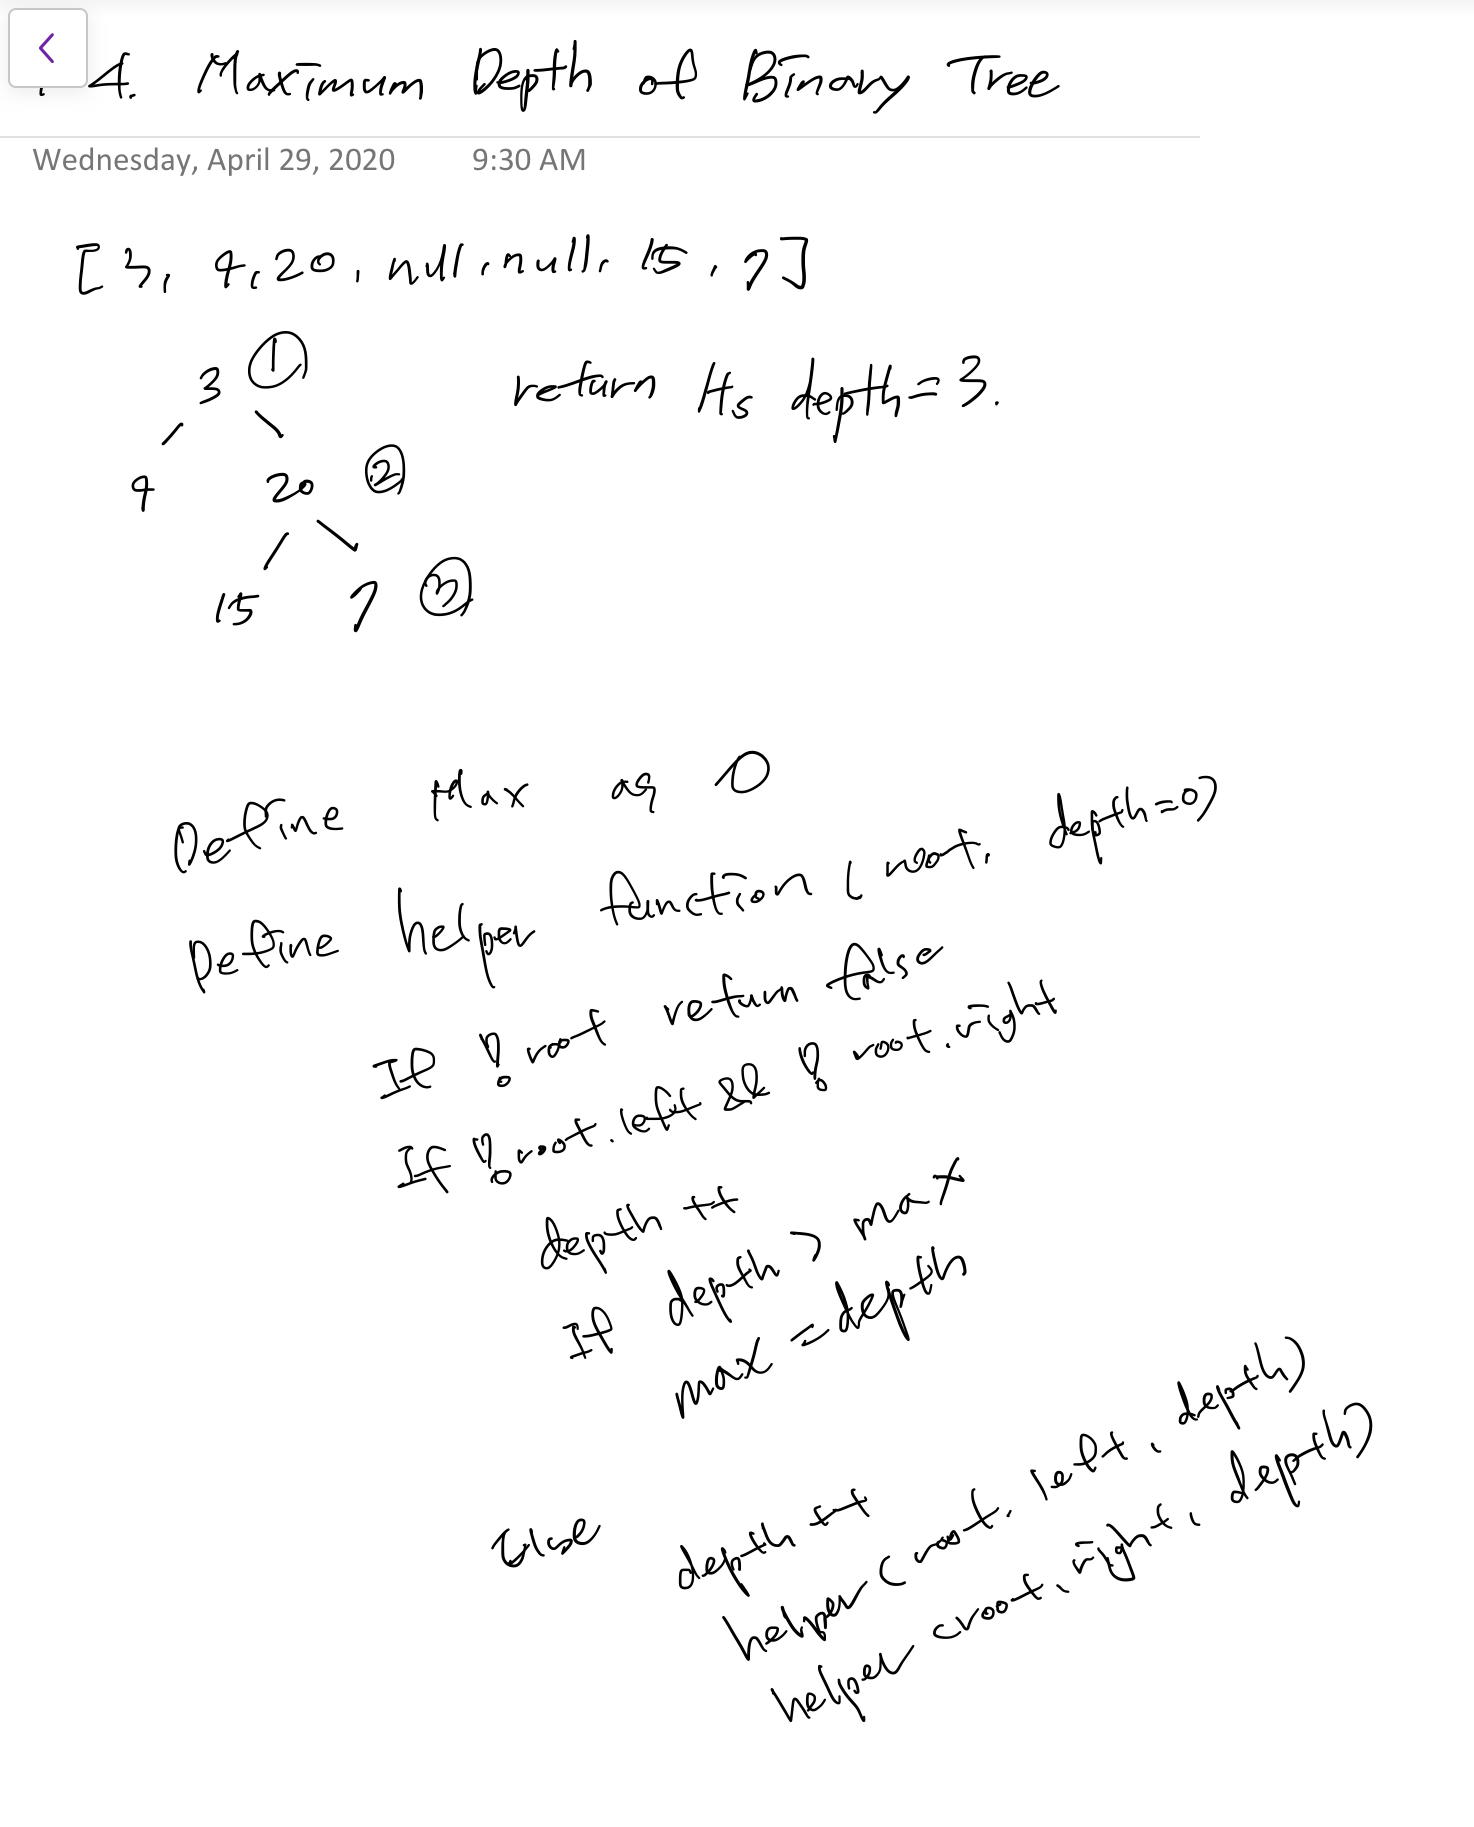 4. Maximum Depth of Binary Tree
Wednesday, April 29, 2020 9:30 AM
[3, 9, 20, null, null, 15, 7]
3 ①
return its depth = 3.
9 20 ②
15 7 ③
Define Max as 0
Define helper function (root, depth=0)
If !root return false
If !root.left && !root.right
depth ++
If depth > max
max = depth
Else depth ++
helper (root.left, depth)
helper (root.right, depth)